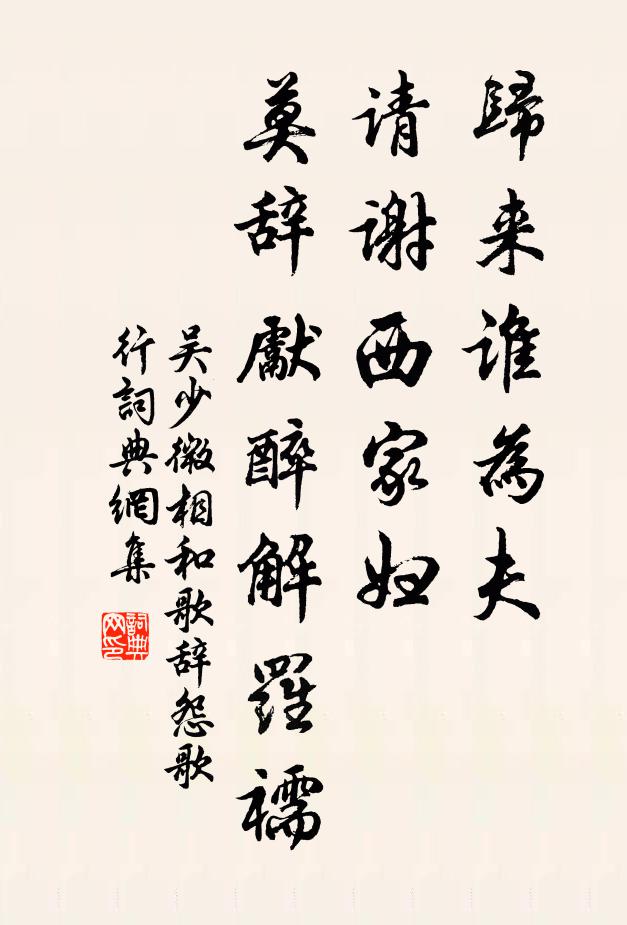 歸来谁為夫
请谢西家妇
莫辞獻醉解羅襦
吴少微相和歌辞怨歌
行詞典網集
詞典网印